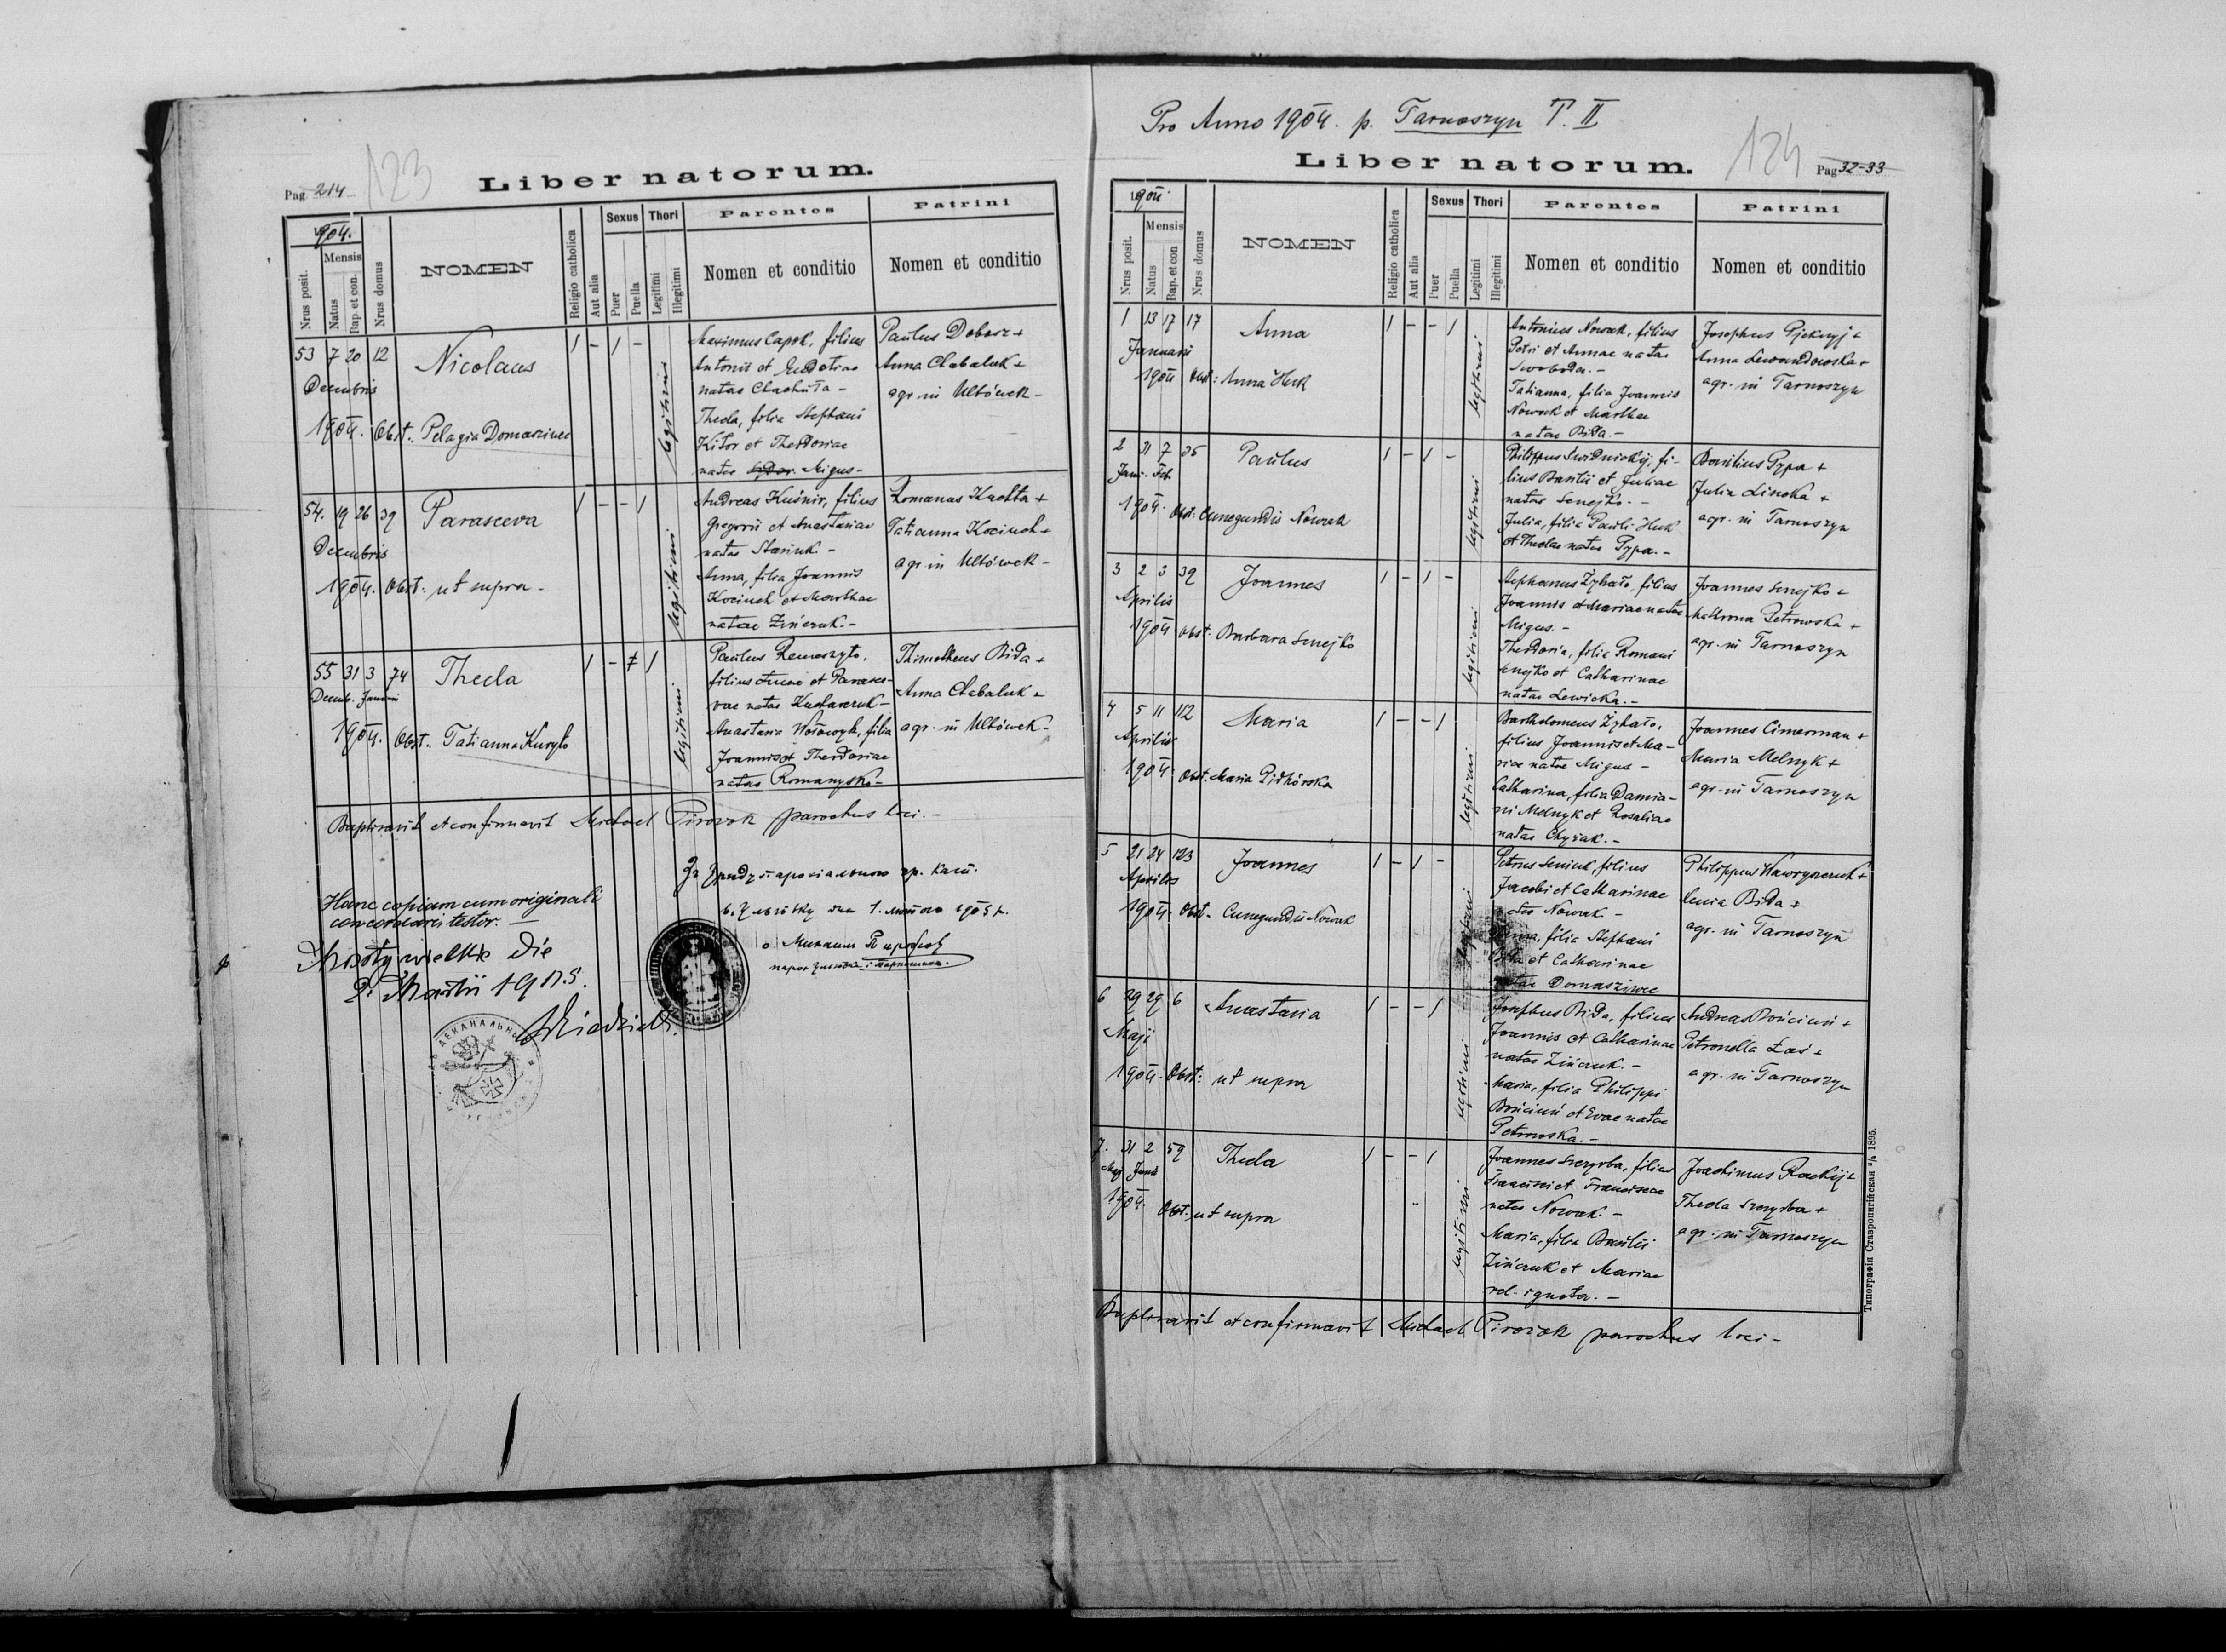 Pag 214
123
Liber natorum.
1904.
Mensis
Nrus posit.
Natus
Bap. et con.
Nrus domus
NOMEN
Religio catholica
Aut alia
Sexus
Puer
Puella
Thori
Legitimi
Illegitimi
Parentes
Nomen et conditio
Patrini
Nomen et conditio
53 7 20 12
Decembris
1904.
Nicolaus
Obst. Pelagia Domasziwec
1 - 1 -
legitimi
Maximus Capok, filius
Antonii et Eudotiae
natae Chachuła -
Thecla, filia Stephani
Kitor et Theodoriae
natae Migus -
Paulus Dobosz +
Anna Chabaluk +
agr. in Ulhówek -
54. 19 26 39
Decembris
1904.
Parasceva
Obst. ut supra -
1 - - 1
legitimi
Andreas Kuśnir, filius
Gregorii et Anastasiae
natae Stasiuk. -
Anna, filia Joannis
Kociuch et Marthae
natae Zińczuk. -
Romanus Kachta +
Tatianna Kociuch +
agr. in Ulhówek -
55 31 3 74
Decemb. Januarii
1904.
Thecla
Obst. Tatianna Kuryło
1 - 1
legitimi
Paulus Remeszyło,
filius Lucae et Parasce-
vae natae Kucharczuk -
Anastasia Wołowczyk, filia
Joannis et Theodoriae
natae Romanyszko -
Thimotheus Bida +
Anna Chabaluk +
agr. in Ulhówek -
Baptisavit et confirmavit Michael Pirożok parochus loci. -
Hanc copiam cum originali
concordare testor. -
Mosty wielkie die
2. Martii 1905.
Зъ Уряду парохіального гр. кат.
в Ульгівку дня 1. лютого 1905 р.
о Михаил Пирожок
парох
Pro Anno 1904. p. Tarnoszyn T. II
124
Liber natorum.
Pag 32-33
1904.
Mensis
Nrus posit.
Natus
Bap. et con
Nrus domus
NOMEN
Religio catholica
Aut alia
Sexus
Puer
Puella
Thori
Legitimi
Illegitimi
Parentes
Nomen et conditio
Patrini
Nomen et conditio
1 13 17 17
Januarii
1904
Anna
Obst: Anna Huk
1 - - 1
legitimi
Antonius Nowak, filius
Petri et Annae natae
Swoboda. -
Tatianna, filia Joannis
Nowak et Marthae
natae Bida. -
Josephus Pjeknyj +
Anna Lewandowska +
agr. in Tarnoszyn
2 31 7 35
Janu. Feb.
1904.
Paulus
Obst. Cunegundis Nowak
1 - 1 -
legitimi
Philippus Swidnickij, fi-
lius Basilii et Juliae
natae Senejko. -
Julia, filia Pauli Huk
et Theclae natae Pypa. -
Basilius Pypa +
Julia Linoka +
agr. in Tarnoszyn
3 2 3 39
Aprilis
1904
Joannes
Obst. Barbara Senejko
1 - 1 -
legitimi
Stephanus Żyhało, filius
Joannis et Mariae natae
Migus. -
Theodoria, filia Romani
Senejko et Catharinae
natae Lewicka. -
Joannes Senejko +
Matrona Petrowska +
agr. in Tarnoszyn
4 5 11 112
Aprilis
1904
Maria
Obst. Maria Pidhórska
1 - - 1
legitimi
Bartholomeus Żyhało,
filius Joannis et Ma-
riae natae Migus -
Catharina, filia Damia-
ni Melnyk et Rosaliae
natae Chyżak. -
Joannes Cimerman +
Maria Melnyk +
agr. in Tarnoszyn
5 21 24 123
Aprilis
1904.
Joannes
Obst. Cunegundis Nowak
1 - 1 -
legitimi
Petrus Seniuk, filius
Jacobi et Catharinae
natae Nowak. -
Anna, filia Stephani
et Catharinae
natae Domasziwec
Philippus Wawrynczuk +
Xenia Bida +
agr. in Tarnoszyn
6 29 29 6
Maji
1904.
Anastasia
Obst: ut supra
1 - - 1
legitimi
Josephus Bida, filius
Joannis et Catharinae
natae Zińczuk. -
Maria, filia Philippi
Bończiuń et Evae natae
Petrowska. -
Andreas Bończiuń +
Petronella Łaś +
agr. in Tarnoszyn
7. 31 2 59
Maj Junii
1904.
Thecla
Obst. ut supra
1 - - 1
legitimi
Joannes Szczyrba, filius
Francisci et Franciscae
natae Nowak. -
Maria, filia Basilii
Zińczuk et Mariae
vel. ignota. -
Joachimus Rackij +
Thecla Szczyrba +
agr. in Tarnoszyn
Baptisavit et confirmavit Michael Pirożok parochus loci -
Типографія Ставропигійская 1895.